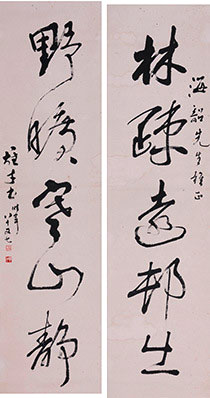 林疎遠邨出
海韶先生雅正
野曠寒山靜